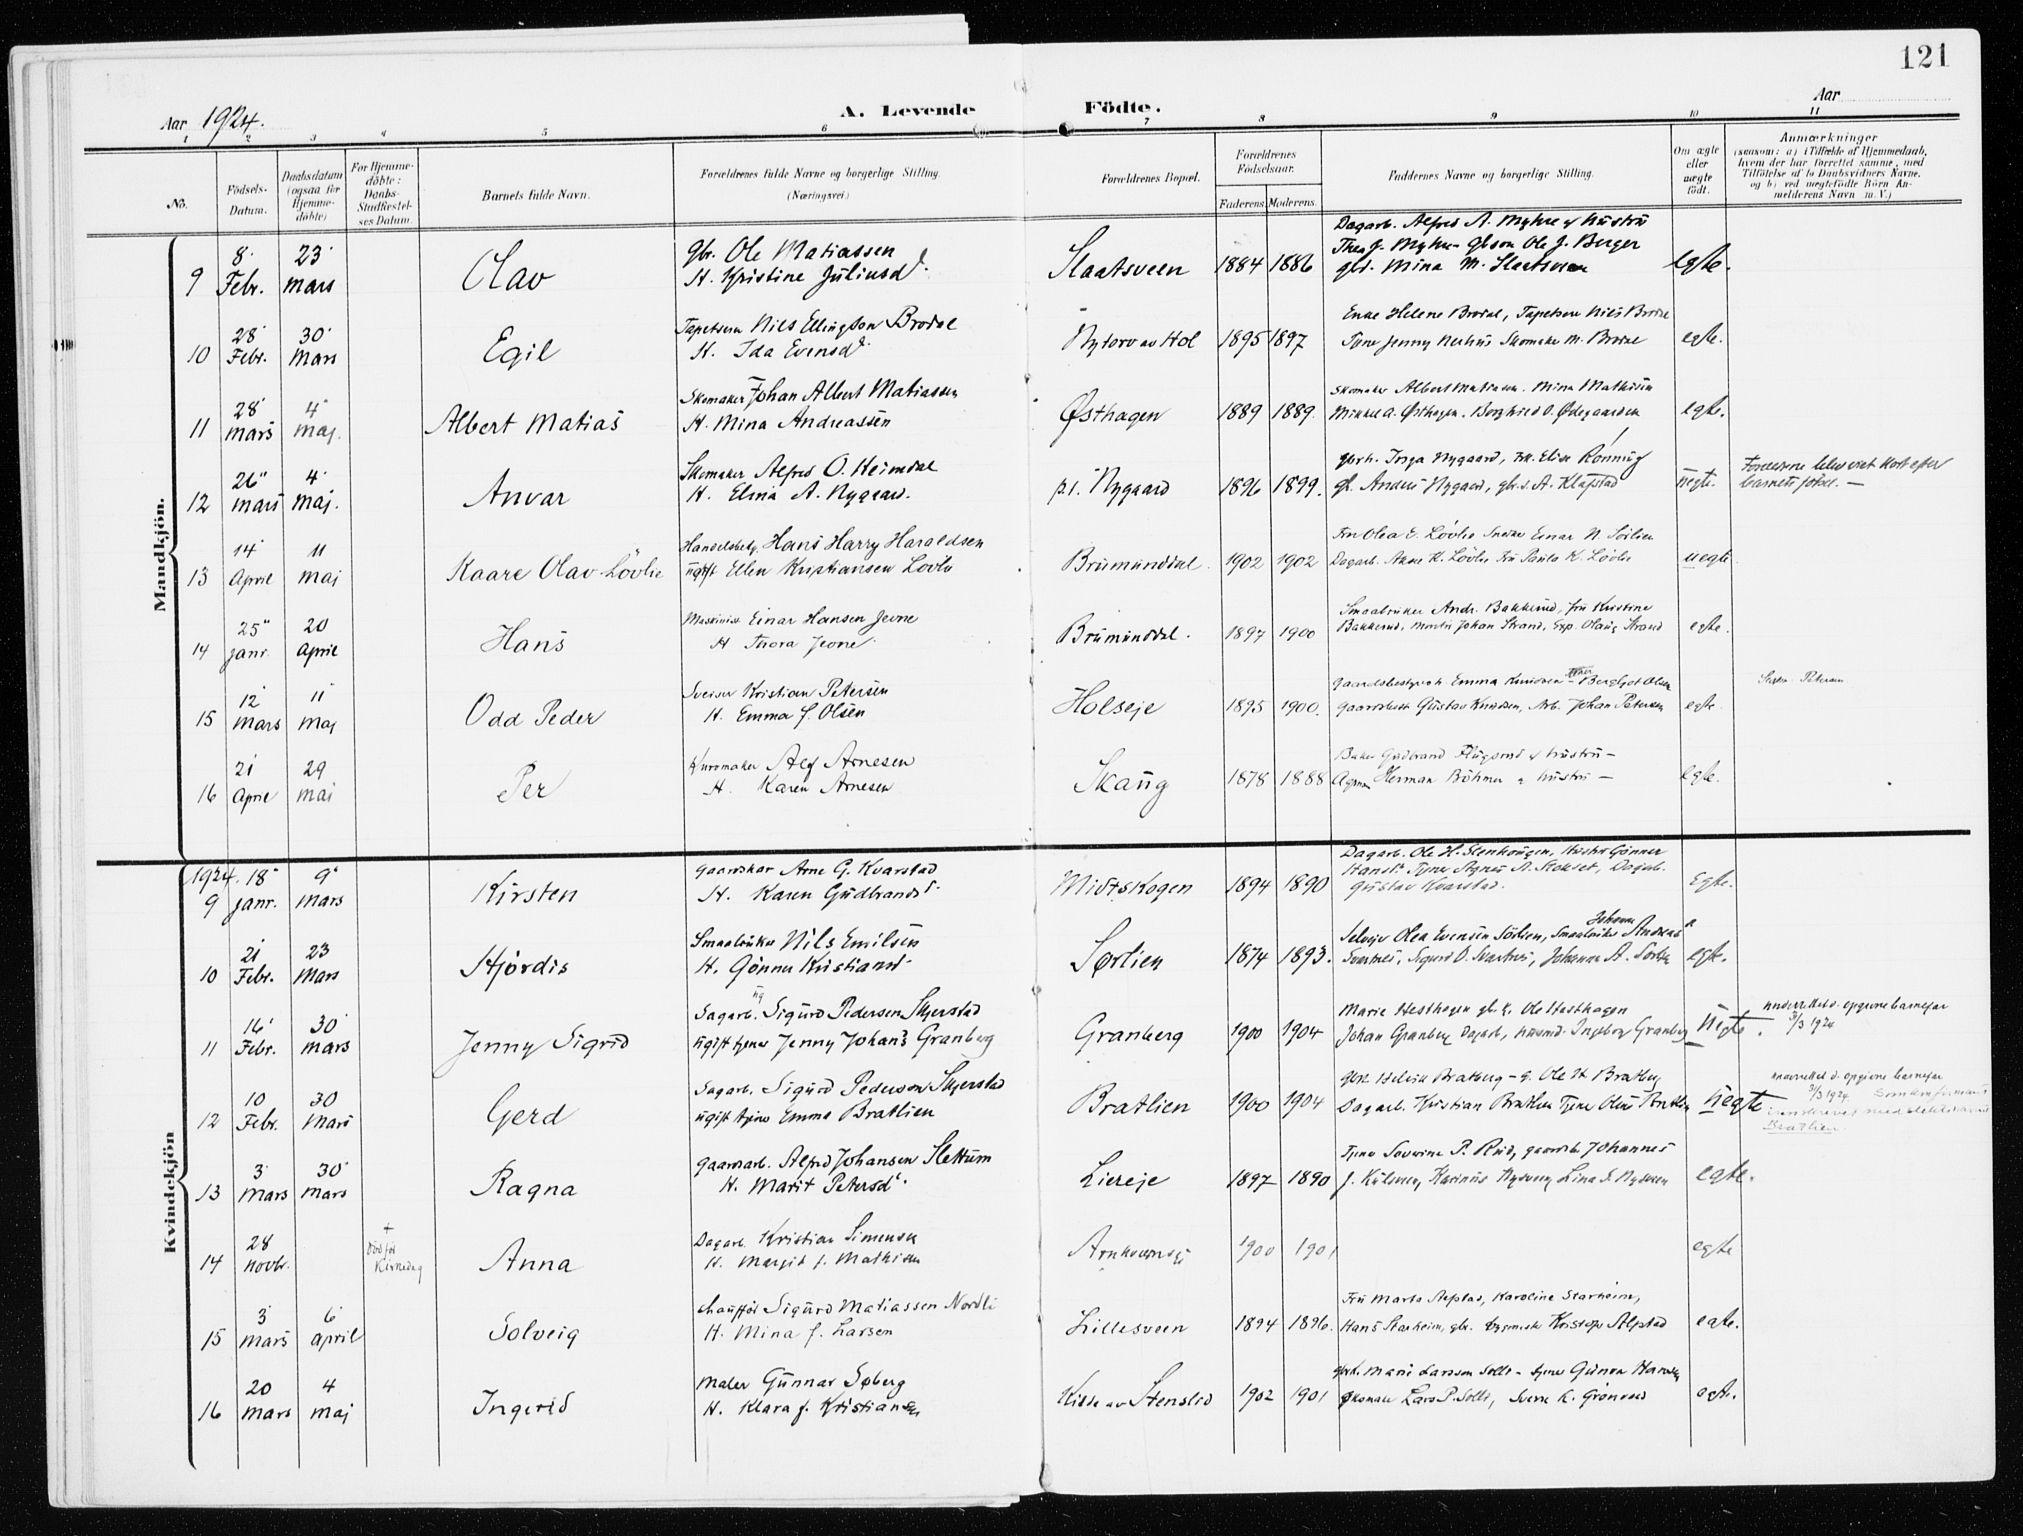 121
Aar 1924.
A. Levende Födte.
Aar
1 2 3 4 5 6 7 8 9 10 11
No.
Födsels-Datum.
Daabsdatum (ogsaa for Hjemmedöbte)
For Hjemmedöbte: Daabs-Stadfestelses Datum.
Barnets fulde Navn.
Forældrenes fulde Navne og borgerlige Stilling. (Næringsvei)
Forældrenes Bopæl.
Forældrenes Födselsaar.
Faderens. Moderens.
Faddernes Navne og borgerlige Stilling.
Om ægte eller uægte födt.
Anmærkninger (saasom: a) i Tilfælde af Hjemmedaab, hvem der har forrettet samme, med Tilföielse af to Daabsvidners Navne, og b) ved uægtefödte Börn Anmelderens Navn m. V.)
Mandkjön.
9 8 Febr. 23 Mars Olav
Gbr. Ole Matiassen
H. Kristine Juliusd.
Slaatsveen 1884 1886
Dagarb. Alfred A. Myhre & hustru
Thea J. Myhre - Gbson Ole J. Berger
gbd. Mina M. Slaatsveen
egte.
10 28 Febr. 30 Mars Egil
Tapetserer Nils Ellingson Brodal
H. Ida Evensd.
Nytorv av Hol 1895 1897
Enke Helene Brodal, Tapetserer Nils Brodal
Tjene Jenny Skomaker M. Brodal
egte.
11 28 Mars 4 Maj. Albert Matias
Skomaker Johan Albert Matiassen
H. Mina Andreassen
Østhagen 1889 1889
Skomaker Albert Matiassen. Mina Mathisen
Mikkel A. Østhagen. Borghild O. Ødegaarden
egte.
12 26 Mars 4 Maj. Anvar
Skomaker Alfred O. Heimdal
H. Elma A. Nygaard.
p.t. Nygaard 1896 1899.
Nygaard, frk. Elise Rönning
gb. Anders Nygaard, gbr.s. A. Klapstad
uegte.
Foreldrene blev viet kort efter
barnets fødsel. —
13 14 April 11 Maj Kaare Olav Lövlie
Handelsbetj. Hans Harry Haraldsen
ugift Ellen Kristiansen Lövlie
Brumunddal. 1902 1902
Fru Olea E. Lövlie Snekker Einar N. Solien
Dagarb. K. Lövlie Fru Paula K. Lövlie
uegte
14 25 Janr. 20 April Hans
Maskinist Einar Hansen Jevne
H. Thora Jevne.
Brumunddal. 1897 1900
Smaabruker Andr. Bakkerud, fru Kristine
Bakkerud, Johan Strand, Exp. Olaug Strand
egte.
15 12 Mars 11 Maj Odd Peder
Sveiser Kristian Petersen
H. Emma J. Olsen
Holseje 1895 1900.
Gaardsbestyrerh. Emma Knudsen - Tjener Bergljot Olsen
Gaardsbest. Gustav Knudsen, Arb. Johan Petersen
egte
Petersen
16 21 April 29 Maj Per
Kurvmaker Alf Arnesen
H. Karen Arnesen
Skaug 1878 1888
Baker Gudbrand Flugsrud & hustru —
Agron. Herman Böhmer & hustru —
egte.
Kvindekjön
1924.
9 18 Janr. 9 Mars Kirsten
Gaardskar Arne G. Kvarstad
H. Karen Gudbrandsd.
Midtskogen 1894 1890
Dagarb. Ole H. Stenhaugen, Hustru Gønner
Tjener Agnes A. Stokset, Dagarb.
Gustav Kvarstad.
Egte.
10 21 Febr. 23 Mars Hjördis
Smaabruker Nils Emilsen
H. Gönner Kristiansd.
Sørlien 1874 1893.
Selvejer Olea Evensen Sörlien, Smaabruker Johannes Andreas
Svartnes, Sigurd O. Svartnes, Johannes A. Sörlien
egte.
11 16 Febr. 30 Mars Jenny Sigrid
Dagarb. ug Sigurd Pedersen Skjerstad
ugift tjener Jenny Johans Granberg
Granberg 1900 1904
Marie Hesthagen gb. k. Ole Hesthagen
Johan Granberg Dagarb., husmd. Ingeborg Granberg
Uegte.
underrettet d. opgivne barnefar
3/3 1924
12 10 Febr. 30 Mars Gerd
Dagarb. Sigurd Pederson Skjerstad
ugift tjene Emma Bratlien
Bratlien 1900 1904
Bratberg - g. Ole H. Bratberg
Dagarb. Kristian Bratlien Tjene Olive Bratlien
Uegte
underrettet d. opgivne barnefar
3/3 1924
Bratlien.
13 3 Mars 30 Mars Ragna
Gaardsarb. Alfred Johansen Slettum
H. Marit Petersd.
Liereje 1897 1890
Tjene Severine P. Rud, gaardbr. Johannes
J. Karinus Nysveen Lina S. Nysveen
egte.
14 28 Novbr. † Död før Kirnedag Anna
Dagarb. Kristian Simensen
H. Margit J. Mathisen
1900 1901
egte
15 3 Mars 6 April Solveig
Chauffør Sigurd Matiassen Nordli
H. Mina J. Larsen
Lillesveen 1894 1896.
Fru Marta Alpstad, Karoline Starheim,
Hans Starheim, gbr. Kristofer Alpstad
egte.
16 20 Mars 4 Maj Ingerid
Maler Gunnar Søberg
H. Klara J. Kristiansen
Kilde av Stenslid 1902 1901
Marie Larssen Solli - tjener Gunda Hansen
Skomaker Lars P. Solli, Sverre K. Grönvold
egte.